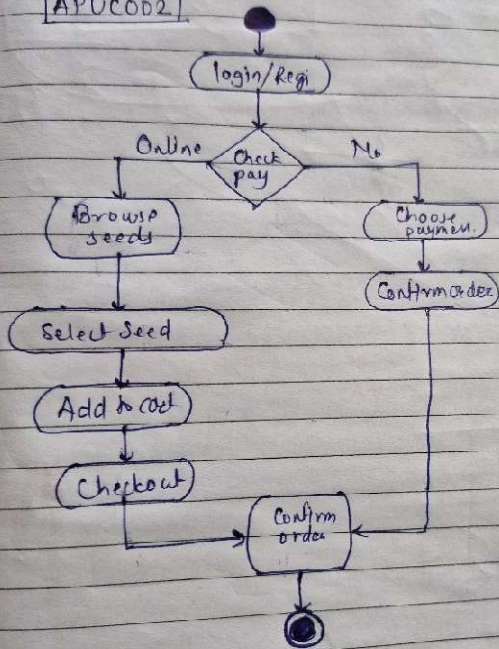 APUC002
login/Regi
Online
Check
pay
No
Browse
seeds
Choose
paymen.
Confirm order
Select Seed
Add to cart
Checkout
Confirm
order